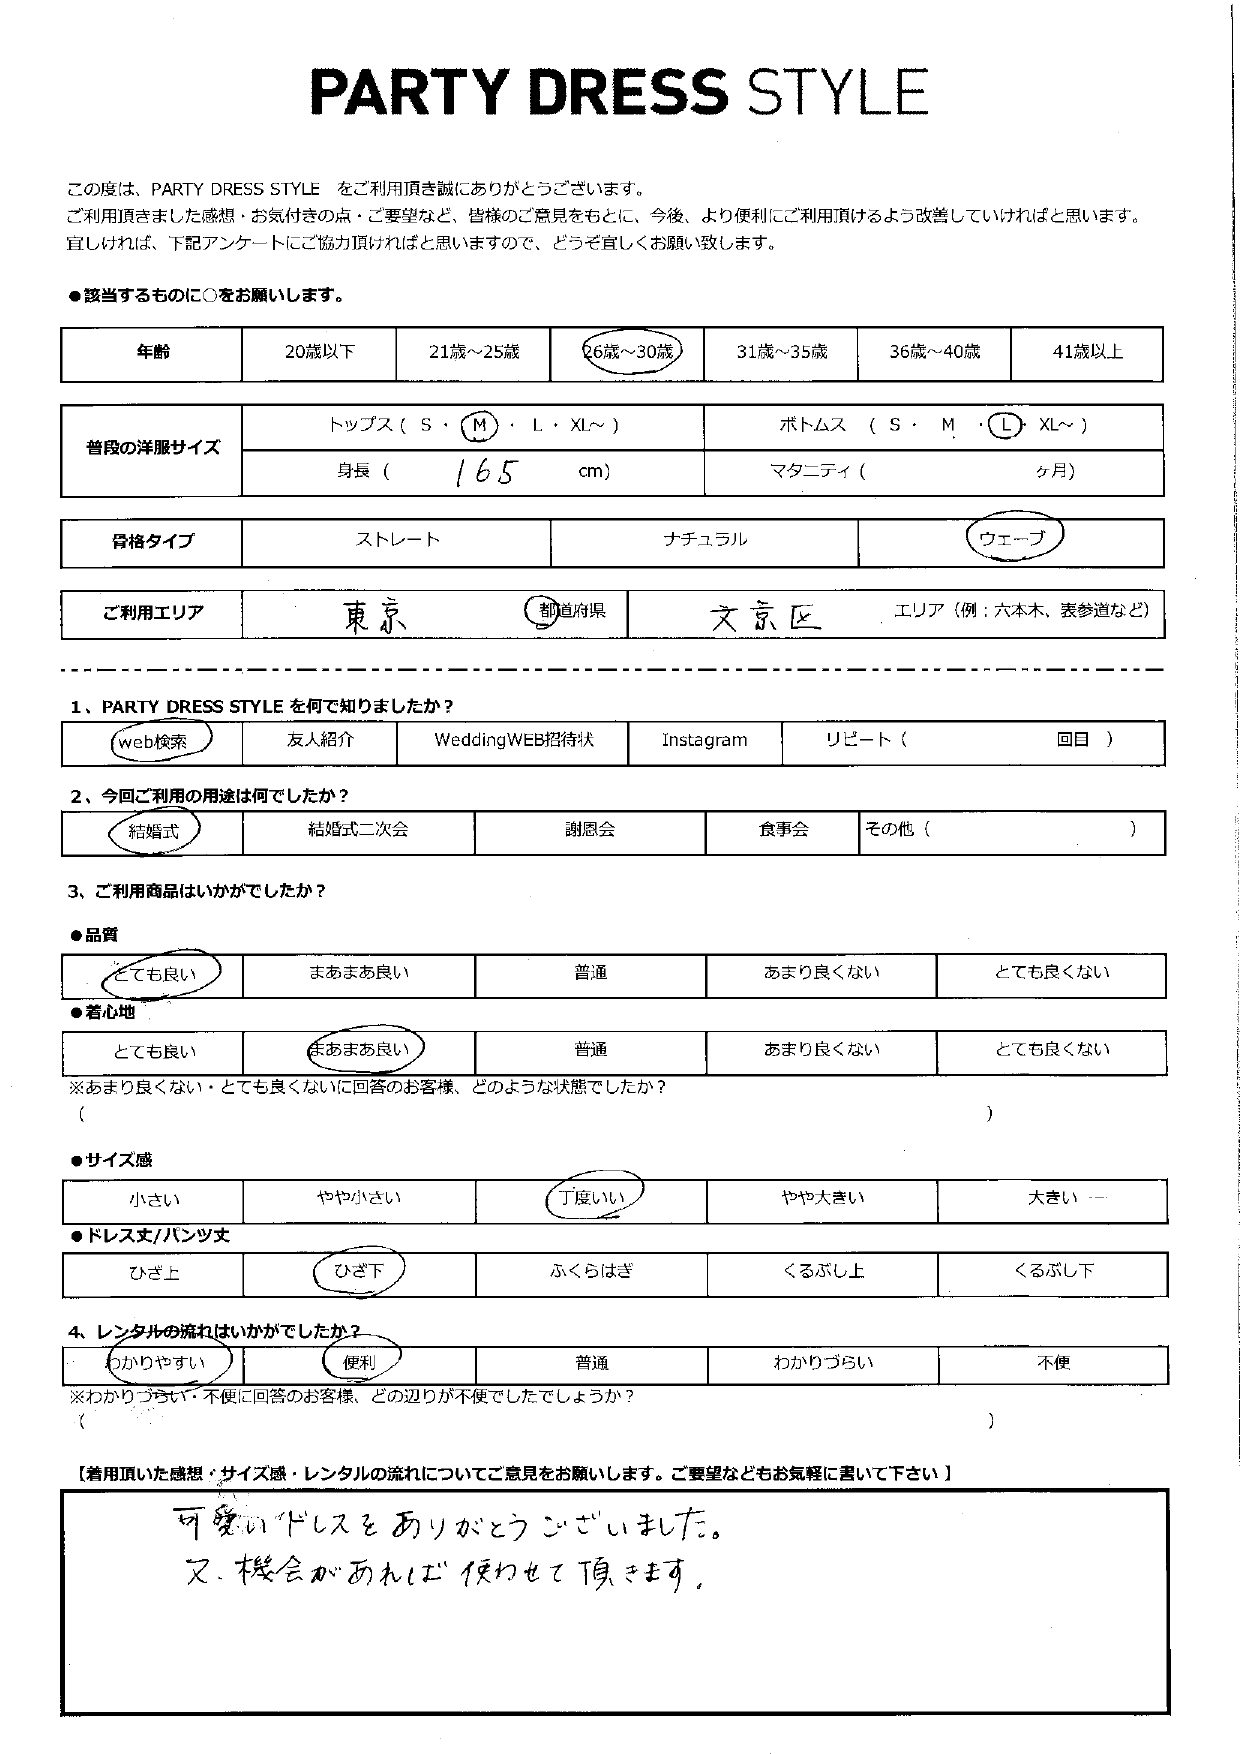 PARTY DRESS STYLE
この度は、PARTY DRESS STYLE　をご利用頂き誠にありがとうございます。
ご利用頂きました感想・お気付きの点・ご要望など、皆様のご意見をもとに、今後、より便利にご利用頂けるよう改善していければと思います。
宜しければ、下記アンケートにご協力頂ければと思いますので、どうぞ宜しくお願い致します。
●該当するものに○をお願いします。
年齢 20歳以下 21歳～25歳 26歳～30歳 31歳～35歳 36歳～40歳 41歳以上
普段の洋服サイズ トップス ( S ・ M ・ L ・ XL～ ) ボトムス ( S ・ M ・ L ・ XL～ )
身長 ( 165 cm) マタニティ ( ヶ月)
骨格タイプ ストレート ナチュラル ウェーブ
ご利用エリア 東京 都道府県 文京区 エリア（例：六本木、表参道など）
1、PARTY DRESS STYLE を何で知りましたか？
web検索 友人紹介 WeddingWEB招待状 Instagram リピート ( 回目 )
2、今回ご利用の用途は何でしたか？
結婚式 結婚式二次会 謝恩会 食事会 その他 ( )
3、ご利用商品はいかがでしたか？
●品質
とても良い まあまあ良い 普通 あまり良くない とても良くない
●着心地
とても良い まあまあ良い 普通 あまり良くない とても良くない
※あまり良くない・とても良くないに回答のお客様、どのような状態でしたか？
( )
●サイズ感
小さい やや小さい 丁度いい やや大きい 大きい
●ドレス丈/パンツ丈
ひざ上 ひざ下 ふくらはぎ くるぶし上 くるぶし下
4、レンタルの流れはいかがでしたか？
わかりやすい 便利 普通 わかりづらい 不便
※わかりづらい・不便に回答のお客様、どの辺りが不便でしたでしょうか？
( )
【着用頂いた感想・サイズ感・レンタルの流れについてご意見をお願いします。ご要望などもお気軽に書いて下さい 】
可愛いドレスをありがとうございました。
又、機会があれば使わせて頂きます。